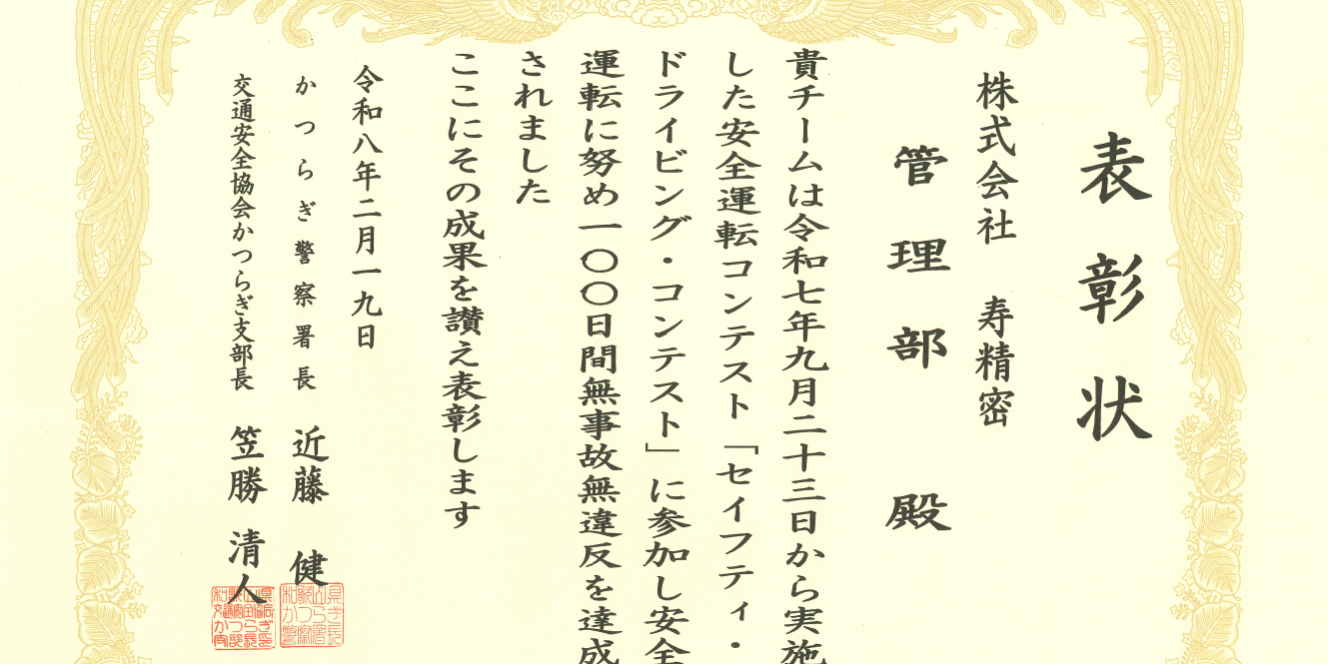 表彰状
株式会社 寿精密
管理部 殿
貴チームは令和七年九月二十三日から実施
した安全運転コンテスト「セイフティ・
ドライビング・コンテスト」に参加し安全
運転に努め一〇〇日間無事故無違反を達成
されました
ここにその成果を讃え表彰します
令和八年二月一九日
かつらぎ警察署長 近藤 健
交通安全協会かつらぎ支部長 笠勝 清人